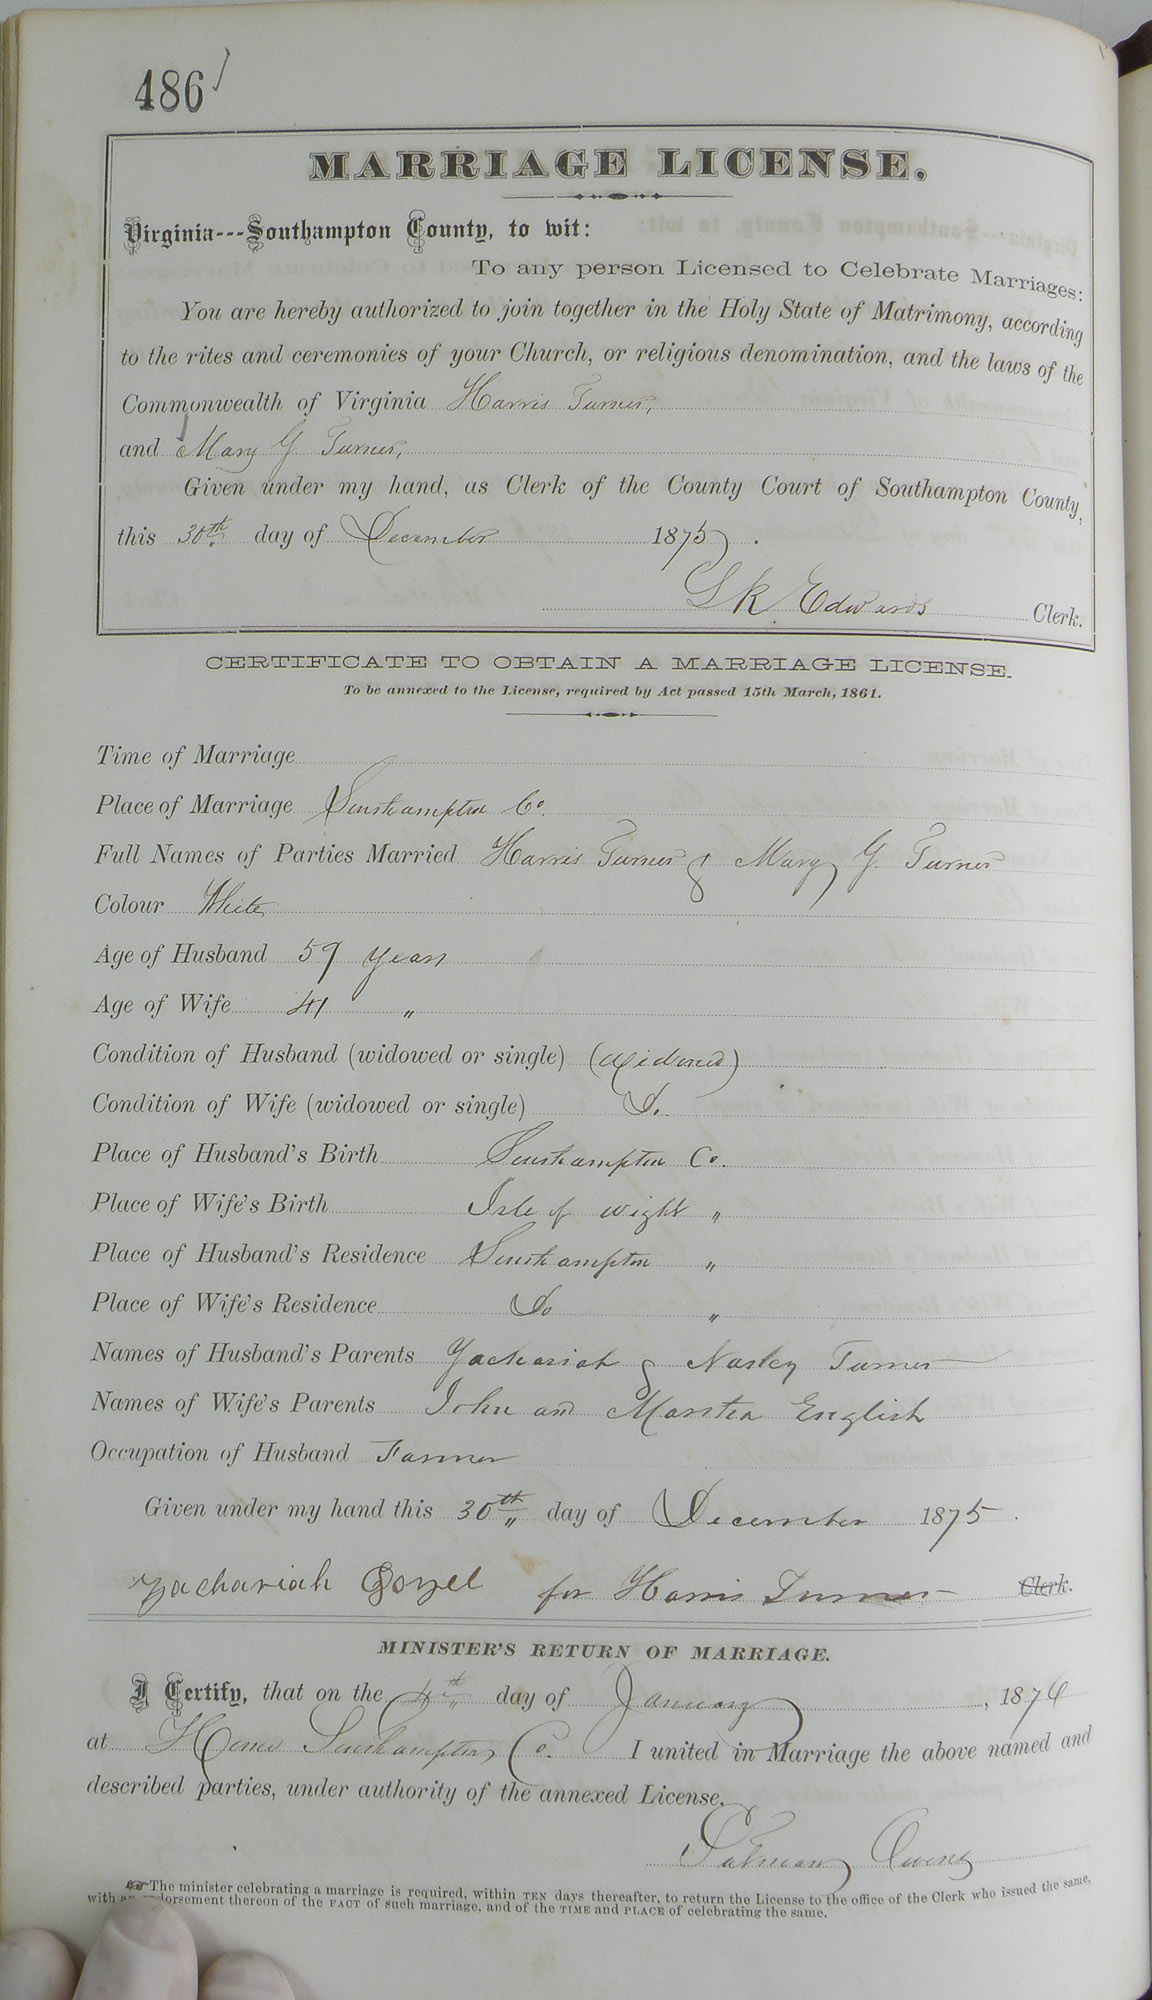 486
MARRIAGE LICENSE.
Virginia---Southampton County, to wit:
To any person Licensed to Celebrate Marriages:
You are hereby authorized to join together in the Holy State of Matrimony, according
to the rites and ceremonies of your Church, or religious denomination, and the laws of the
Commonwealth of Virginia Harris Turner,
and Mary J. Turner,
Given under my hand, as Clerk of the County Court of Southampton County,
this 30th day of December 1875.
L R Edwards Clerk.
CERTIFICATE TO OBTAIN A MARRIAGE LICENSE.
To be annexed to the License, required by Act passed 15th March, 1861.
Time of Marriage
Place of Marriage Southampton Co.
Full Names of Parties Married Harris Turner & Mary J. Turner
Colour White
Age of Husband 59 years
Age of Wife 41 "
Condition of Husband (widowed or single) (Widowed)
Condition of Wife (widowed or single) Do.
Place of Husband's Birth Southampton Co.
Place of Wife's Birth Isle of Wight "
Place of Husband's Residence Southampton "
Place of Wife's Residence Do "
Names of Husband's Parents Zachariah & Turner
Names of Wife's Parents John and Martha English
Occupation of Husband Farmer
Given under my hand this 30th day of December 1875.
Zachariah for Harris Turner Clerk.
MINISTER'S RETURN OF MARRIAGE.
I Certify, that on the 4th day of January, 1876
at Home Southampton Co. I united in Marriage the above named and
described parties, under authority of the annexed License.
Putnam Owens
The minister celebrating a marriage is required, within TEN days thereafter, to return the License to the office of the Clerk who issued the same,
with an endorsement thereon of the FACT of such marriage, and of the TIME and PLACE of celebrating the same.